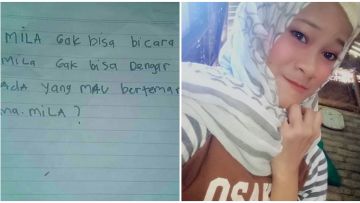 MILA Gak bisa bicara
MILA Gak bisa Dengar
ADA yang MAU berteman
ma. MiLA ?
OSAK